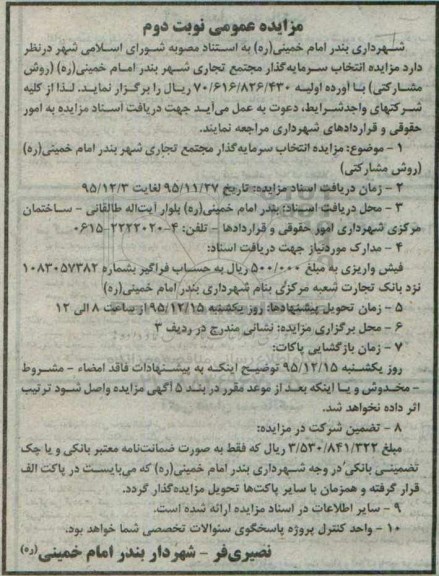 مزایده عمومی نوبت دوم
شهرداری بندر امام خمینی(ره) به استناد مصوبه شورای اسلامی شهر درنظر
دارد مزایده انتخاب سرمایه‌گذار مجتمع تجاری شهر بندر امام خمینی(ره) (روش
مشارکتی) با آورده اولیه ۷۰/۶۱۶/۸۲۶/۴۳۰ ریال را برگزار نماید. لذا از کلیه
شرکتهای واجدشرایط، دعوت به عمل می‌آید جهت دریافت اسناد مزایده به امور
حقوقی و قراردادهای شهرداری مراجعه نمایند.
۱ - موضوع: مزایده انتخاب سرمایه‌گذار مجتمع تجاری شهر بندر امام خمینی(ره)
(روش مشارکتی)
۲ - زمان دریافت اسناد مزایده: تاریخ ۹۵/۱۱/۲۷ لغایت ۹۵/۱۲/۳
۳ - محل دریافت اسناد: بندر امام خمینی(ره) بلوار آیت‌اله طالقانی - ساختمان
مرکزی شهرداری امور حقوقی و قراردادها - تلفن: ۴-۲۲۲۲۰۲۰-۰۶۱۵
۴ - مدارک موردنیاز جهت دریافت اسناد:
فیش واریزی به مبلغ ۵۰۰/۰۰۰ ریال به حساب فراگیر بشماره ۱۰۸۳۰۵۷۳۸۲
نزد بانک تجارت شعبه مرکزی بنام شهرداری بندر امام خمینی(ره)
۵ - زمان تحویل پیشنهادها: روز یکشنبه ۹۵/۱۲/۱۵ از ساعت ۸ الی ۱۲
۶ - محل برگزاری مزایده: نشانی مندرج در ردیف ۳
۷ - زمان بازگشایی پاکات:
روز یکشنبه ۹۵/۱۲/۱۵ توضیح اینکه به پیشنهادات فاقد امضاء - مشروط
- مخدوش و یا اینکه بعد از موعد مقرر در بند ۵ آگهی مزایده واصل شود ترتیب
اثر داده نخواهد شد.
۸ - تضمین شرکت در مزایده:
مبلغ ۳/۵۳۰/۸۴۱/۳۲۲ ریال که فقط به صورت ضمانت‌نامه معتبر بانکی و یا چک
تضمینی بانکی در وجه شهرداری بندر امام خمینی(ره) که می‌بایست در پاکت الف
قرار گرفته و همزمان با سایر پاکت‌ها تحویل مزایده‌گذار گردد.
۹ - سایر اطلاعات در اسناد مزایده ارائه شده است.
۱۰ - واحد کنترل پروژه پاسخگوی سئوالات تخصصی شما خواهد بود.
نصیری‌فر - شهردار بندر امام خمینی(ره)